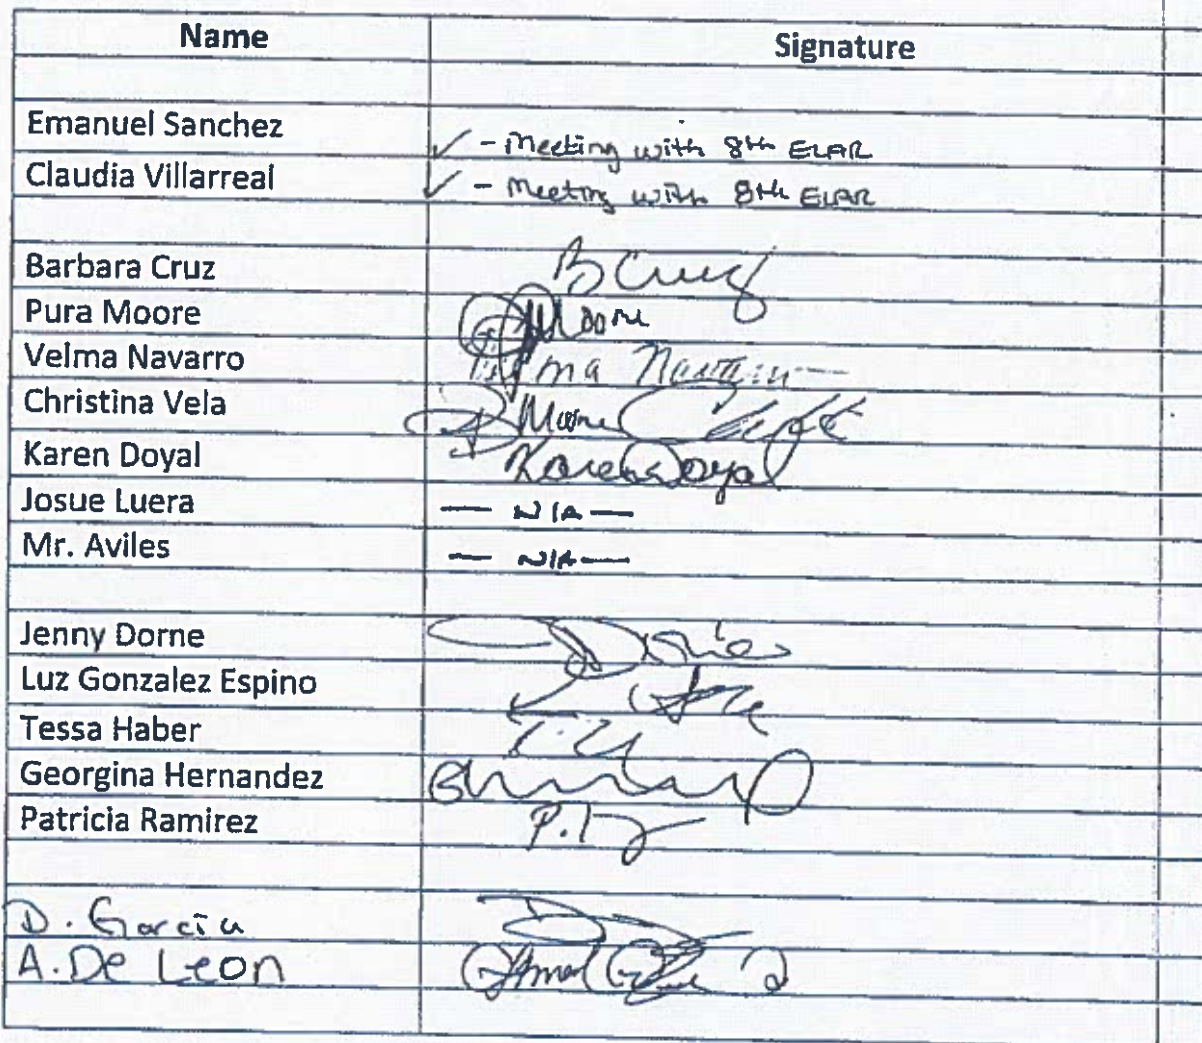 Name Signature
Emanuel Sanchez ✓ - Meeting with 8th ELAR
Claudia Villarreal ✓ - Meeting with 8th ELAR
Barbara Cruz B Cruz
Pura Moore Moore
Velma Navarro Velma Navarro
Christina Vela
Karen Doyal Karen Doyal
Josue Luera — N/A —
Mr. Aviles — N/A —
Jenny Dorne
Luz Gonzalez Espino
Tessa Haber
Georgina Hernandez
Patricia Ramirez
D. Garcia
A. De Leon